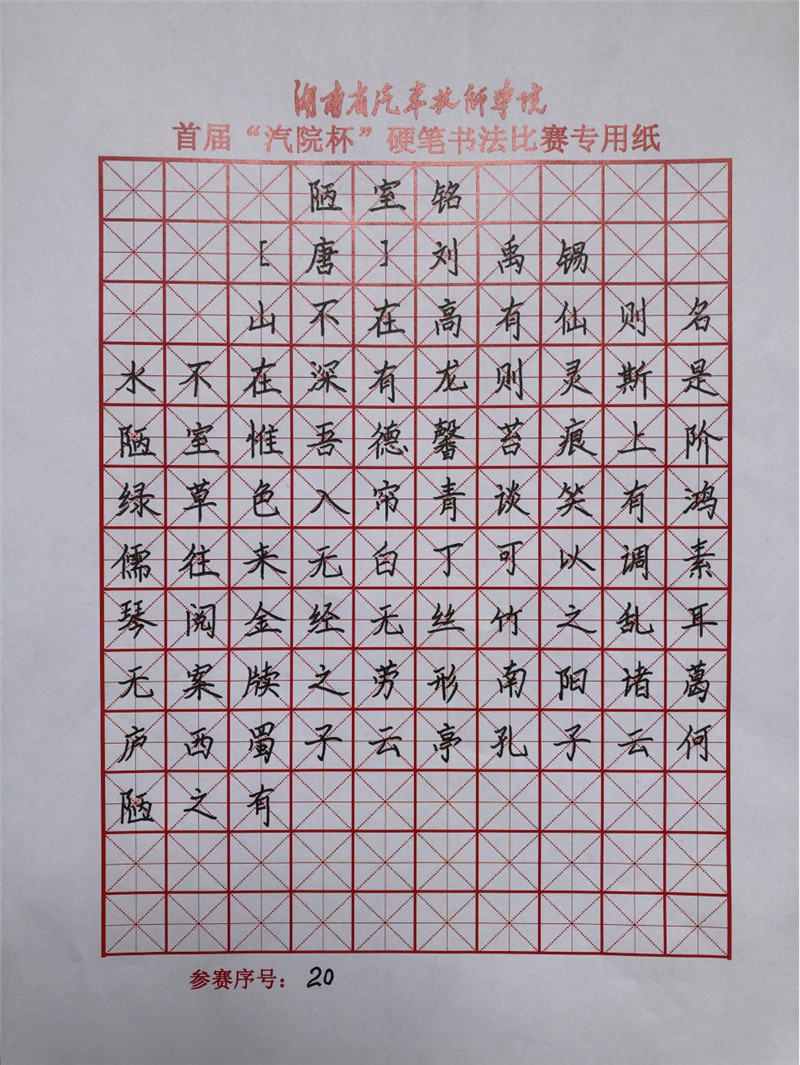 湖南省汽车技师学院
首届“汽院杯”硬笔书法比赛专用纸
陋室铭
[唐]刘禹锡
山不在高有仙则名
水不在深有龙则灵斯是
陋室惟吾德馨苔痕上阶
绿草色入帘青谈笑有鸿
儒往来无白丁可以调素
琴阅金经无丝竹之乱耳
无案牍之劳形南阳诸葛
庐西蜀子云亭孔子云何
陋之有
参赛序号：20